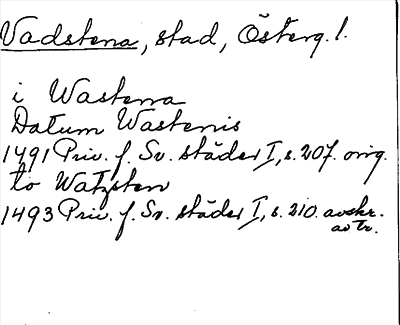 Vadstena, stad, Österg. l.
i Wastena
Datum Wastenis
1491 Priv. f. Sv. städer I, s. 207. orig.
to Watzsten
1493 Priv. f. Sv. städer I, s. 210. avskr.
av tr.